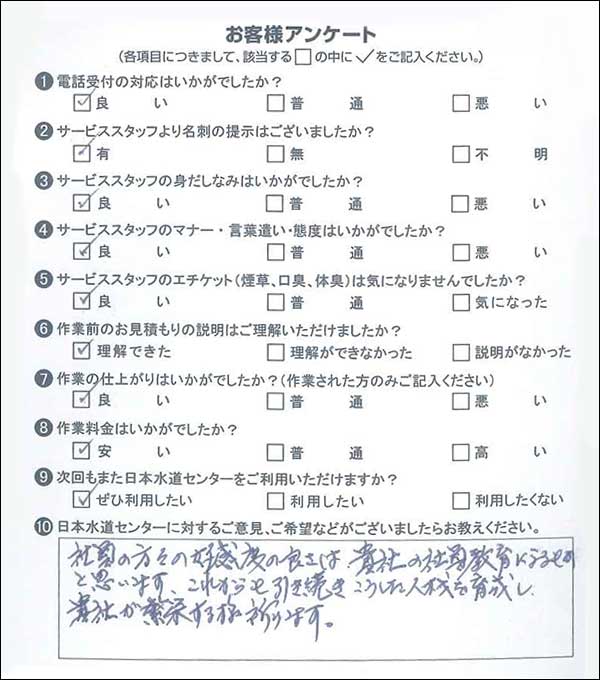 お客様アンケート
(各項目につきまして、該当する□の中に✓をご記入ください。)
❶ 電話受付の対応はいかがでしたか?
☑ 良い □ 普通 □ 悪い
❷ サービススタッフより名刺の提示はございましたか?
☑ 有 □ 無 □ 不明
❸ サービススタッフの身だしなみはいかがでしたか?
☑ 良い □ 普通 □ 悪い
❹ サービススタッフのマナー・言葉遣い・態度はいかがでしたか?
☑ 良い □ 普通 □ 悪い
❺ サービススタッフのエチケット(煙草、口臭、体臭)は気になりませんでしたか?
☑ 良い □ 普通 □ 気になった
❻ 作業前のお見積もりの説明はご理解いただけましたか?
☑ 理解できた □ 理解ができなかった □ 説明がなかった
❼ 作業の仕上がりはいかがでしたか?(作業された方のみご記入ください)
☑ 良い □ 普通 □ 悪い
❽ 作業料金はいかがでしたか?
☑ 安い □ 普通 □ 高い
❾ 次回もまた日本水道センターをご利用いただけますか?
☑ ぜひ利用したい □ 利用したい □ 利用したくない
❿ 日本水道センターに対するご意見、ご希望などがございましたらお教えください。
社員の方々の好感度の良さは、貴社の社員教育によるもの
と思います。これからも引き続きこうした人材を育成し
貴社が繁栄する様祈ります。